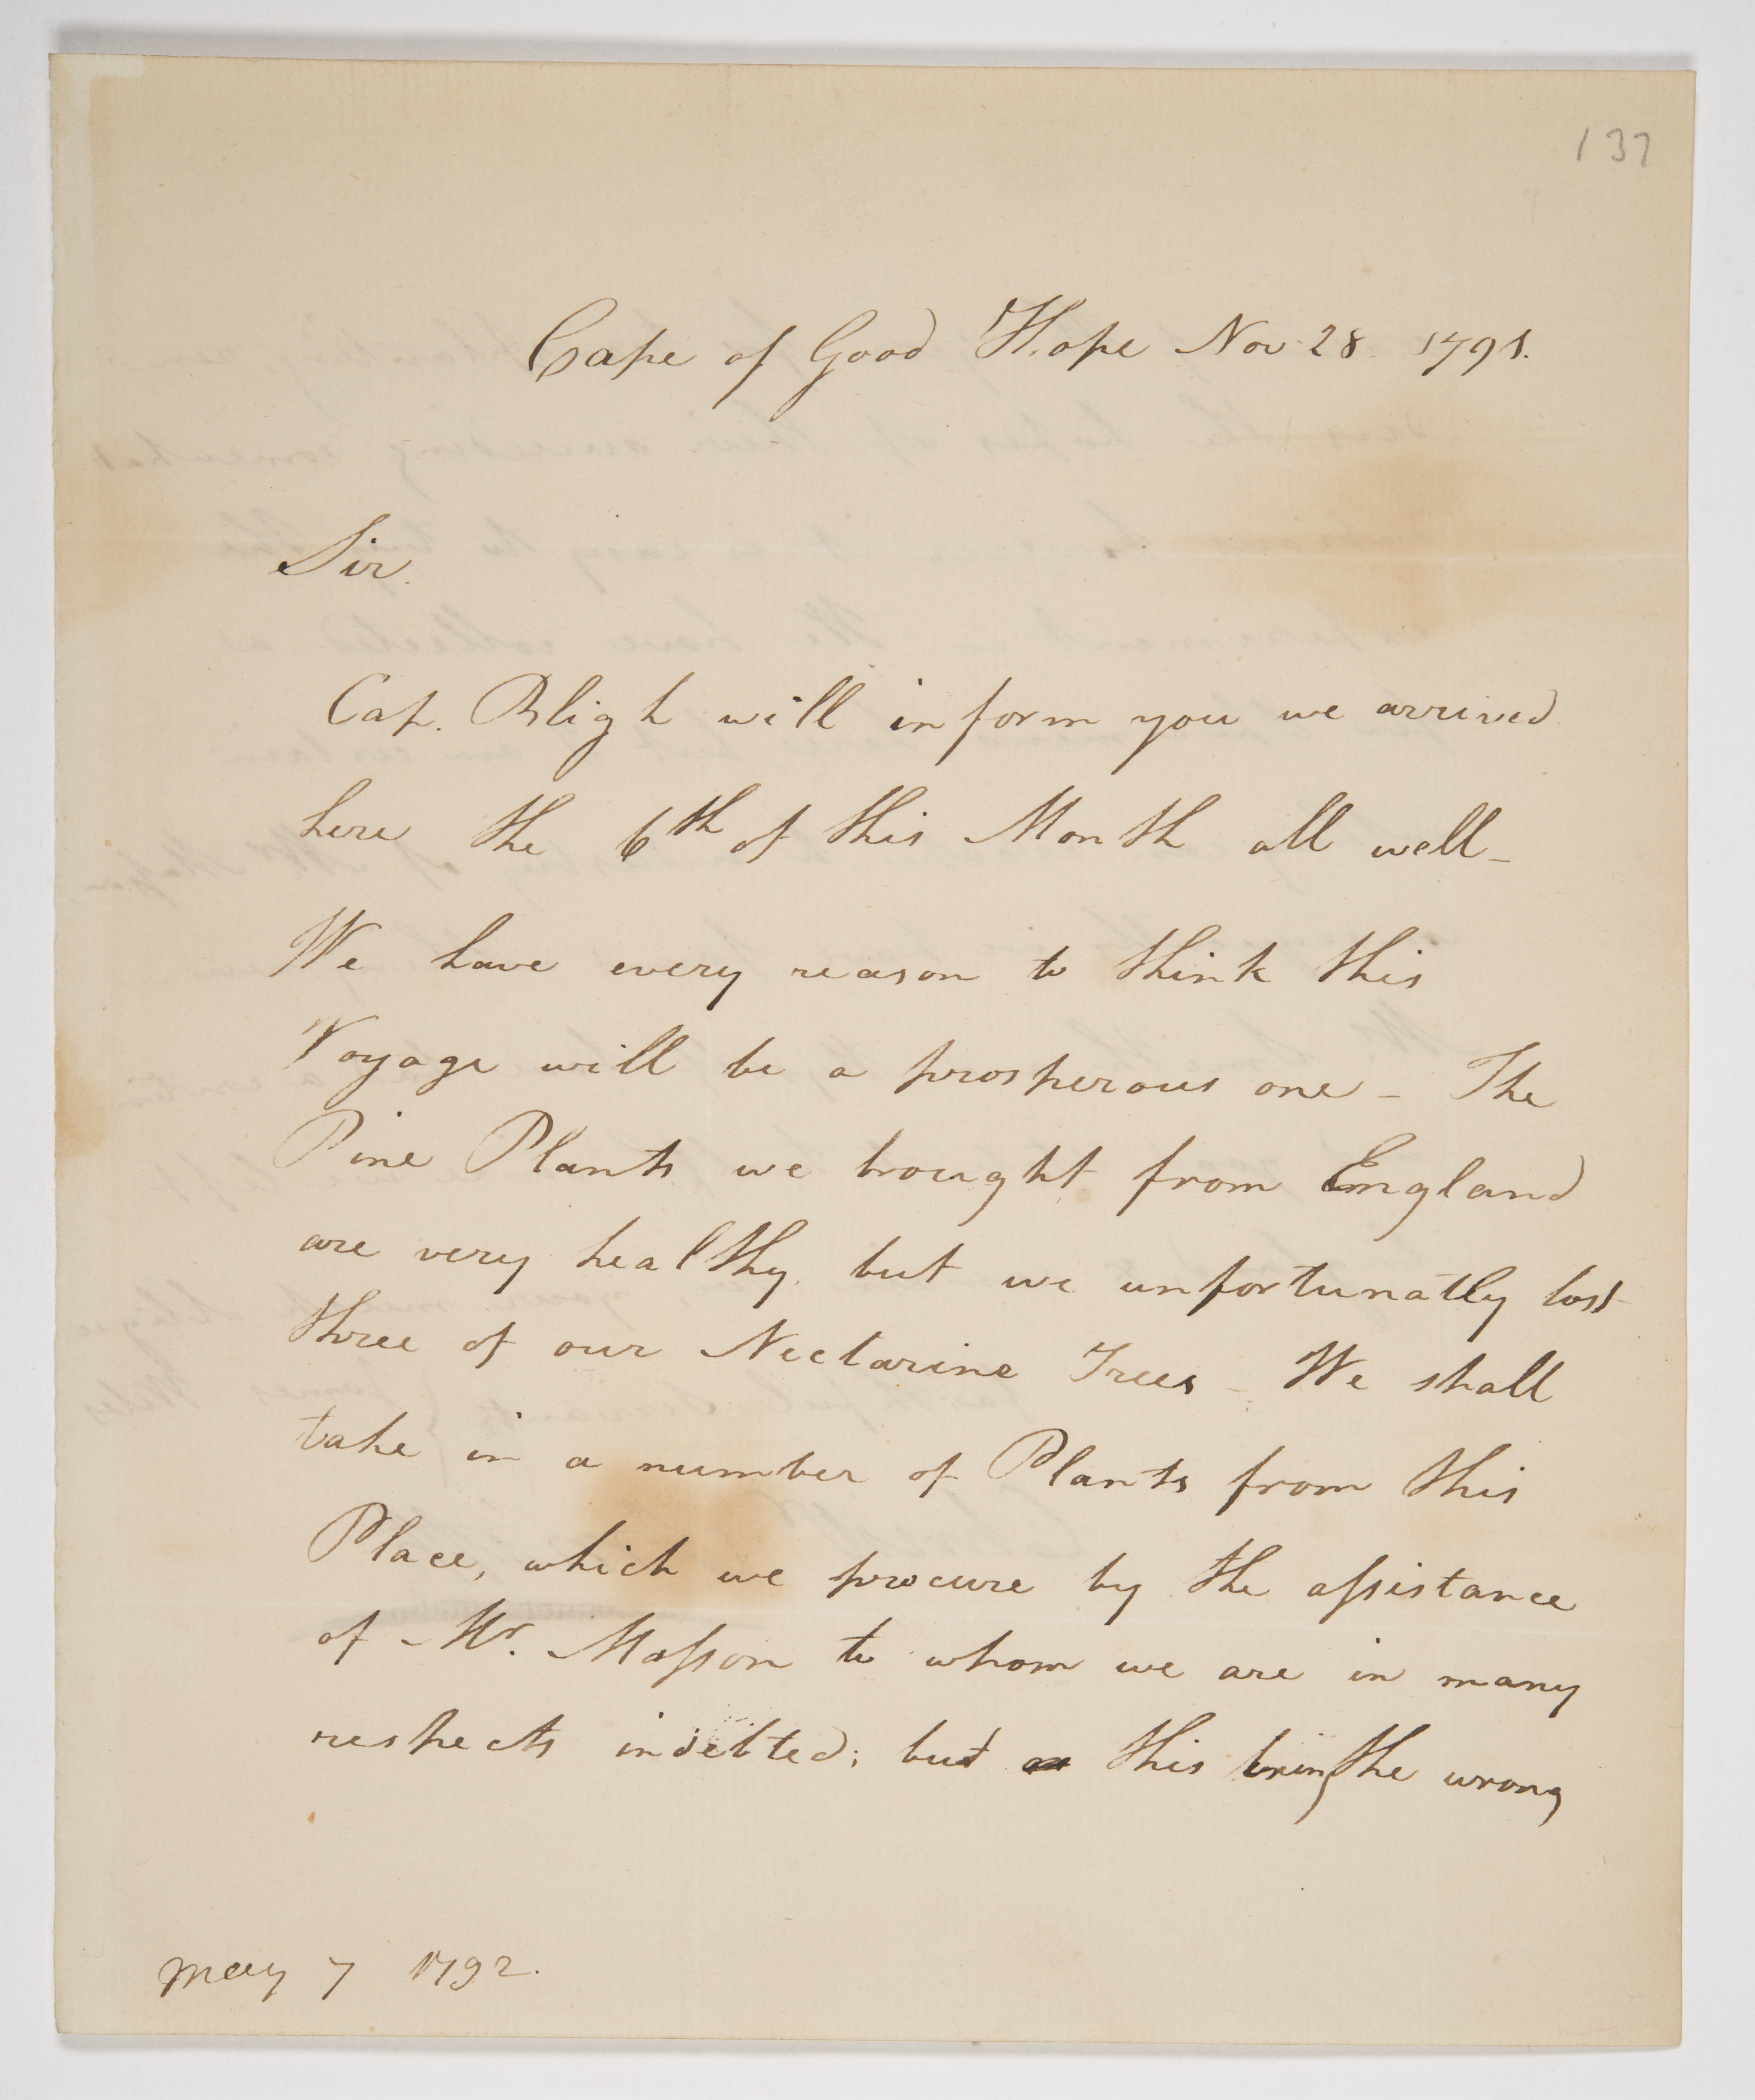 137
Cape of Good Hope Nov 28. 1791.
Sir.
Cap. Bligh will inform you we arrived
here the 6th of this Month all well -
We have every reason to think this
Voyage will be a prosperous one - The
Pine Plants we brought from England
are very healthy, but we unfortunatly lost
three of our Nectarine Trees - We shall
take in a number of Plants from this
Place, which we procure by the assistance
of Mr. Masson to whom we are in many
respects indebted; but this being the wrong
May 7 1792.